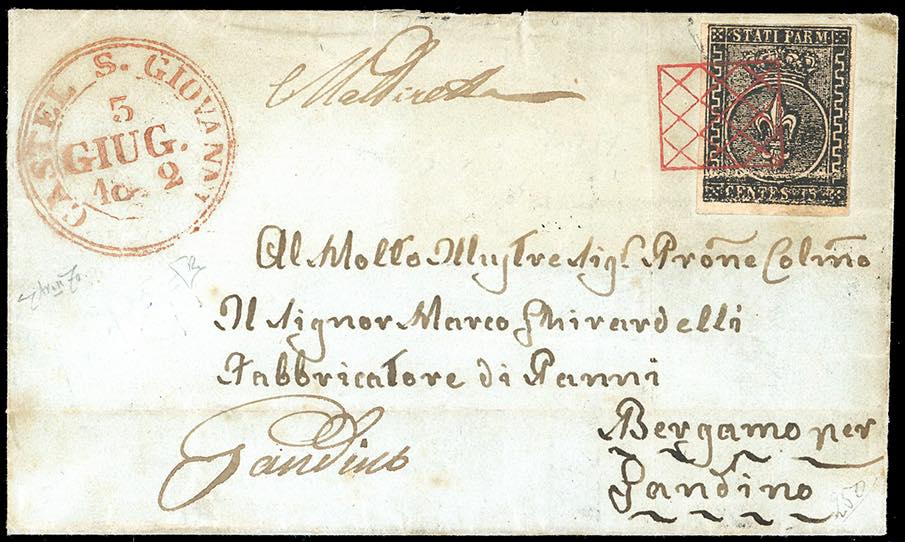 CASTEL S. GIOVANNI
5
GIUG.
18 2
STATI PARM.
CENTES. 15
Al Molto Illustre Sigr. Prone Colmo
Il Signor Marco Ghirardelli
Fabbricatore di Panni
Bergamo per
Gandino
Gandino
250